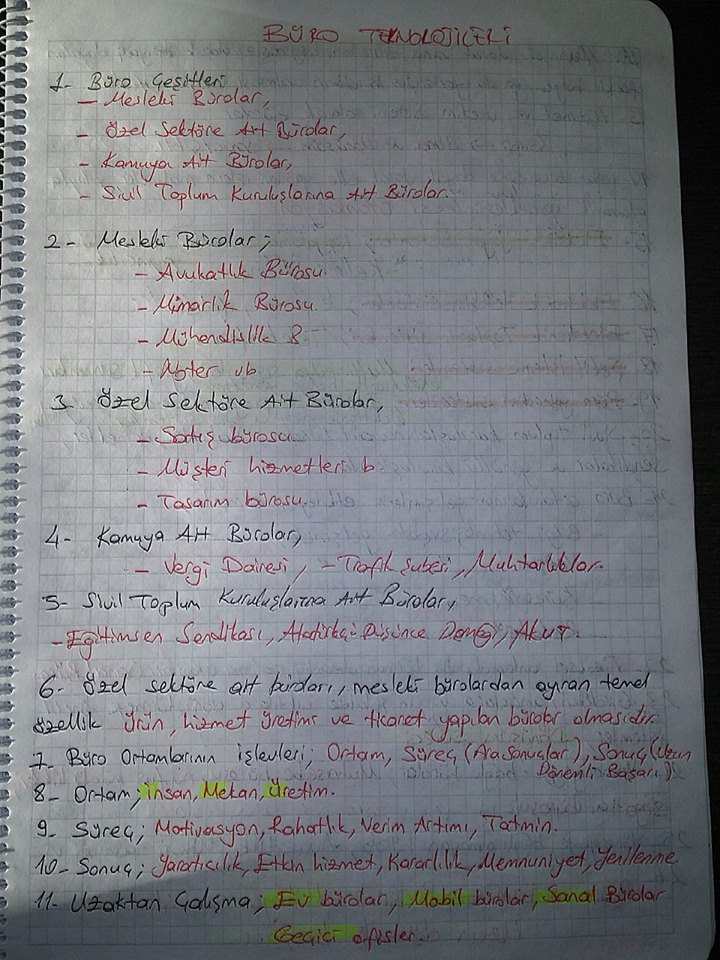 BÜRO TEKNOLOJİLERİ
1- Büro Çeşitleri
- Mesleki Bürolar,
- Özel Sektöre Ait Bürolar,
- Kamuya Ait Bürolar,
- Sivil Toplum Kuruluşlarına Ait Bürolar.
2- Mesleki Bürolar;
- Avukatlık Bürosu
- Mimarlık Bürosu
- Mühendislik B
- Noter vb
3 Özel Sektöre Ait Bürolar,
- Satış bürosu
- Müşteri hizmetleri b
- Tasarım bürosu
4- Kamuya Ait Bürolar,
- Vergi Dairesi, - Trafik Şubesi, Muhtarlıklar.
5- Sivil Toplum Kuruluşlarına Ait Bürolar,
- Eğitimsen Sendikası, Atatürkçü Düşünce Derneği, Akut.
6- Özel sektöre ait büroları, mesleki bürolardan ayıran temel
özellik ürün, hizmet üretimi ve ticaret yapılan bürolar olmasıdır.
7- Büro Ortamlarının işlevleri; Ortam, Süreç (Ara Sonuçlar), Sonuç (Uzun
Dönemli Başarı)
8- Ortam; insan, Mekan, Üretim.
9- Süreç; Motivasyon, Rahatlık, Verim Artımı, Tatmin.
10- Sonuç; Yaratıcılık, Etkin hizmet, Kararlılık, Memnuniyet, Yenilenme
11- Uzaktan Çalışma; Ev bürolar, Mobil bürolar, Sanal Bürolar
Geçici ofisler.